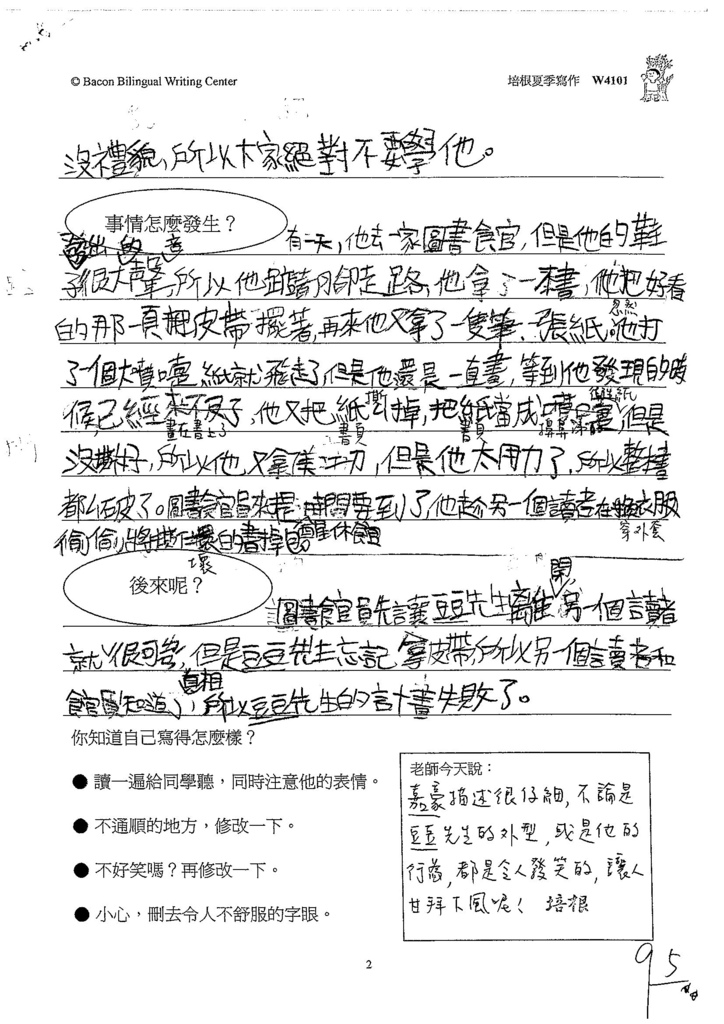 © Bacon Bilingual Writing Center
培根夏季寫作 W4101
沒禮貌，所以大家絕對不要學他。
事情怎麼發生？
有一天，他去一家圖書館官，但是他的鞋
發出的
子很大聲，所以他踮著腳走路，他拿了一本書，他把好看
的那一頁把皮帶擺著，再來他又拿了一隻筆、一張紙。他打
忽然
了一個大噴嚏，紙就飛走了，但是他還是一直畫，等到他發現的時
候，已經來不及了，他又把紙撕掉，把紙當成，但是
畫在書上了
書頁
書頁
沒撕好，所以他又拿美工刀，但是他太用力了，所以整
都破了。圖書館官員來提時間要到了，他趁另一個讀者在衣服
穿外套
偷偷將撕壞的書掉包
壞
後來呢？
圖書館官員先讓豆豆先生離開，另一個讀者
就很可憐，但是豆豆先生忘記拿皮帶，所以另一個讀者和
館員知道真相，所以豆豆先生的計畫失敗了。
你知道自己寫得怎麼樣？
● 讀一遍給同學聽，同時注意他的表情。
● 不通順的地方，修改一下。
● 不好笑嗎？再修改一下。
● 小心，刪去令人不舒服的字眼。
老師今天說：
嘉豪描述很仔細，不論是
豆豆先生的外型，或是他的
行為，都是令人發笑的，讓人
甘拜下風呢！ 培根
95
2